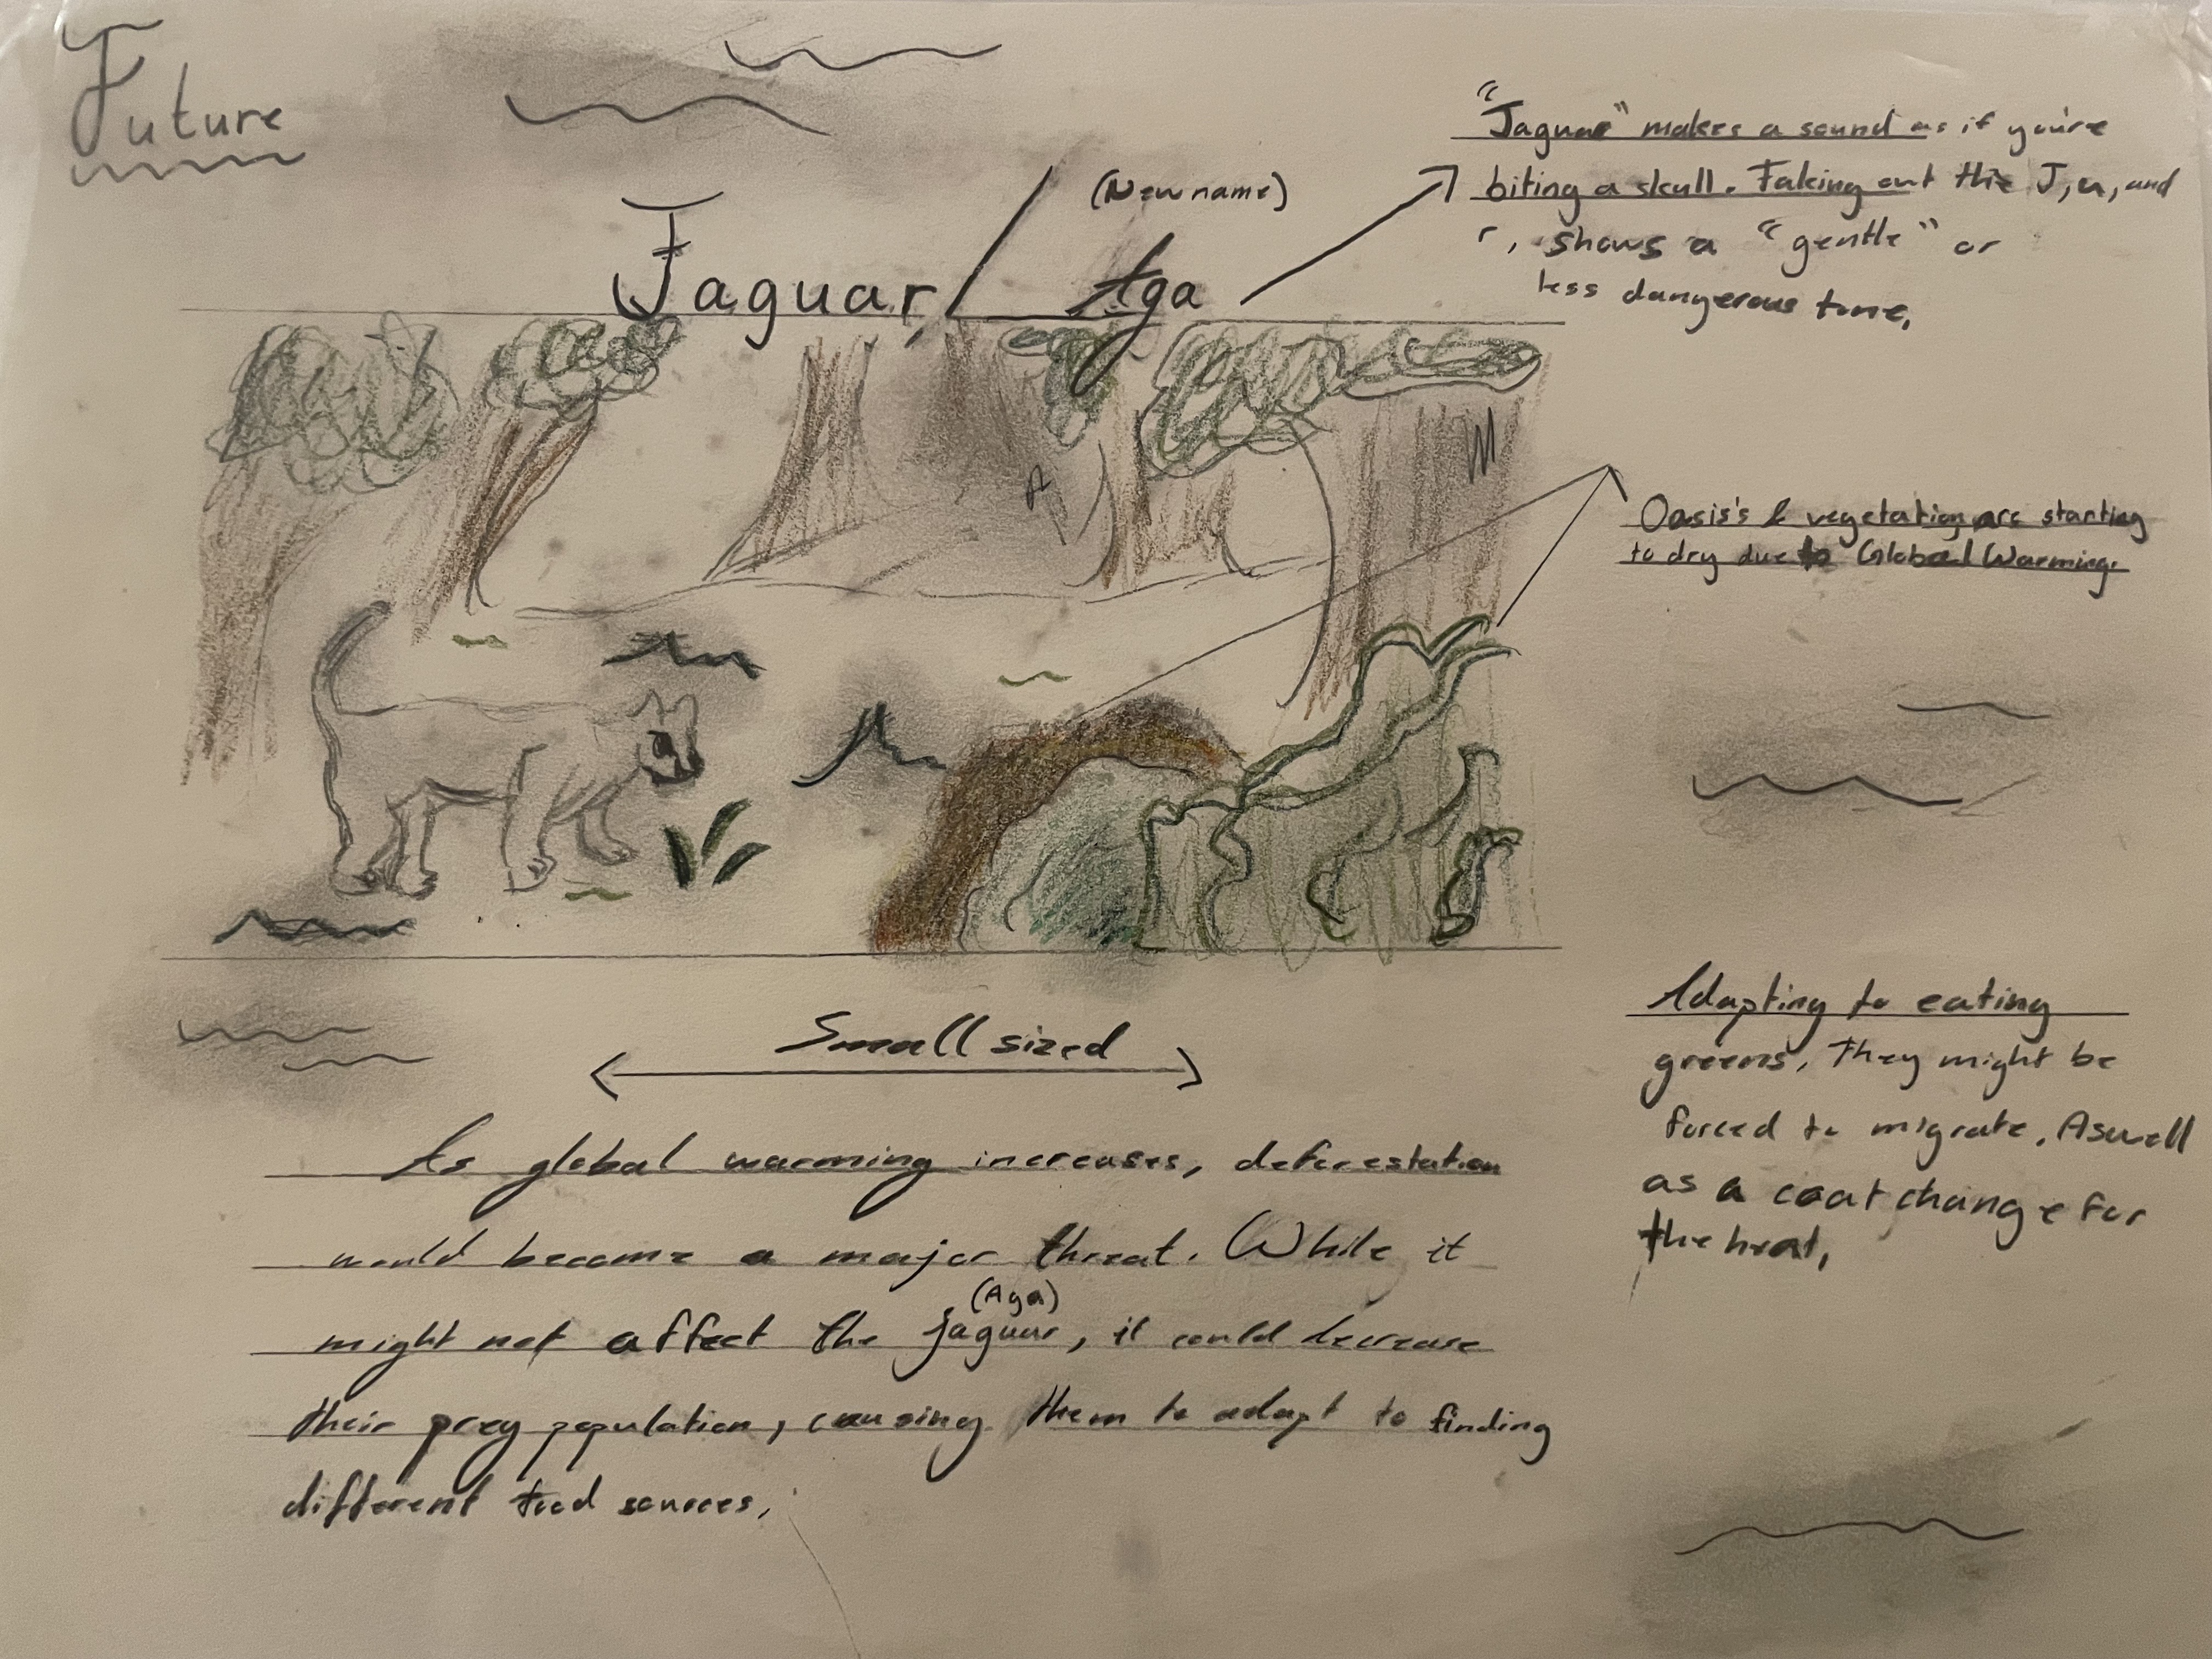 Future
Jaguar / Aga
(New name)
"Jaguar" makes a sound as if you're
biting a skull. Taking out the J, u, and
r, shows a "gentle" or
less dangerous tone.
Oasis's & vegetation are starting
to dry due to Global Warming.
Small sized
Adapting to eating
greens, they might be
forced to migrate. Aswell
as a coat change for
the heat.
As global warming increases, deforestation
would become a major threat. While it
(Aga)
might not affect the jaguar, it could decrease
their prey population, causing them to adapt to finding
different food sources.